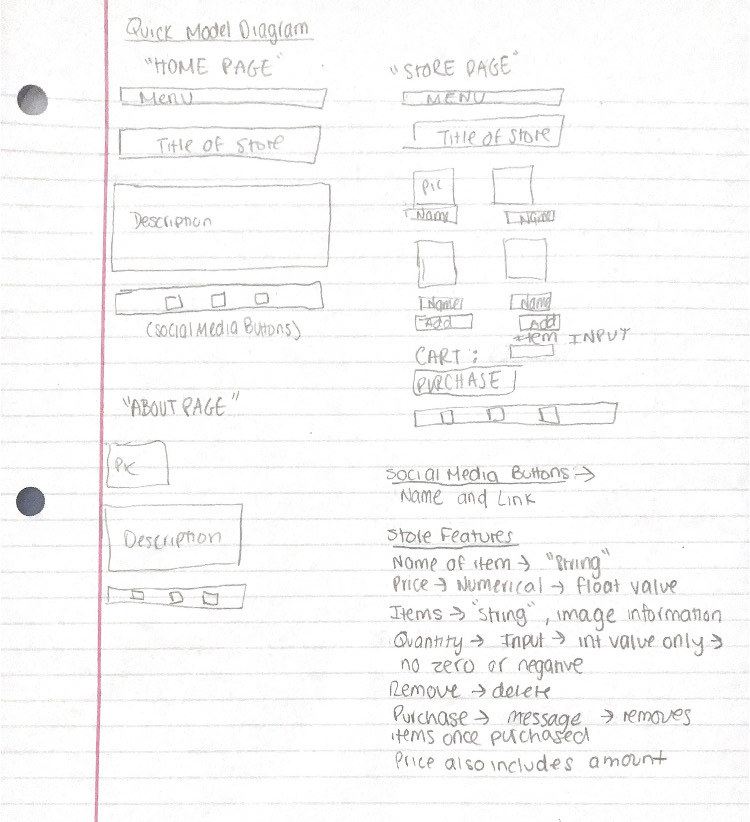 Quick Model Diagram
"HOME PAGE"
Menu
Title of Store
Description
(Social Media Buttons)
"ABOUT PAGE"
Pic
Description
"STORE PAGE"
MENU
Title of Store
Pic
Name Name
Name Name
Add Add
item INPUT
CART:
PURCHASE
Social Media Buttons →
Name and Link
Store Features
Name of item → "String"
Price → Numerical → float value
Items → "string", image information
Quantity → Input → int value only →
no zero or negative
Remove → delete
Purchase → message → removes
items once purchased
Price also includes amount